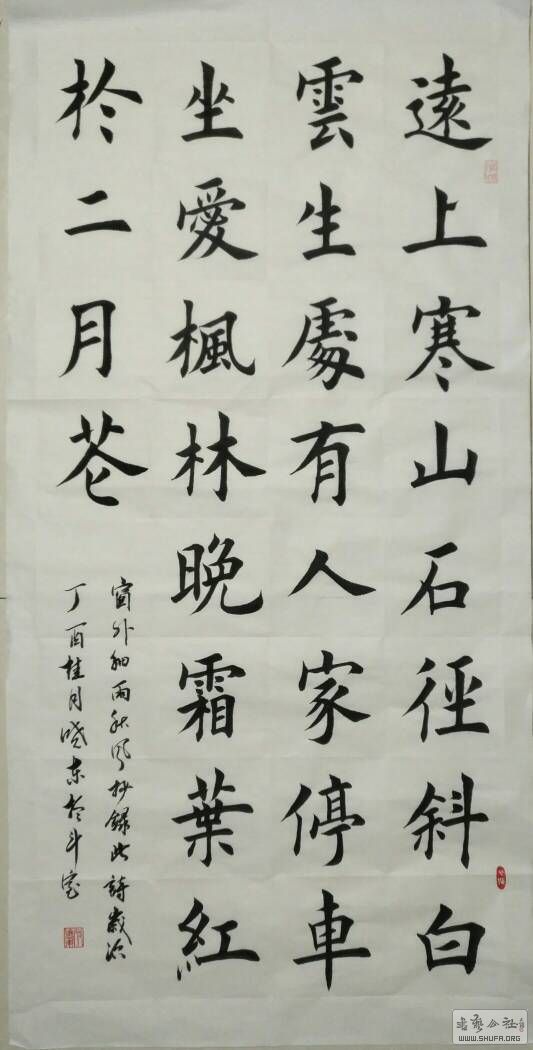 遠上寒山石徑斜白
雲生處有人家停車
坐愛楓林晚霜葉紅
於二月花
窗外細雨秋風抄錄此詩歲次
丁酉桂月曉東於斗室
WWW.SHUFA.ORG